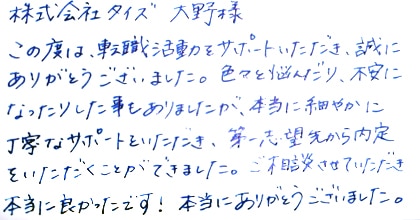 株式会社タイズ 大野様
この度は、転職活動をサポートいただき、誠に
ありがとうございました。色々と悩んだり、不安に
なったりした事もありましたが、本当に細やかに
丁寧なサポートをいただき、第一志望先から内定
をいただくことができました。ご相談させていただき
本当に良かったです！本当にありがとうございました。